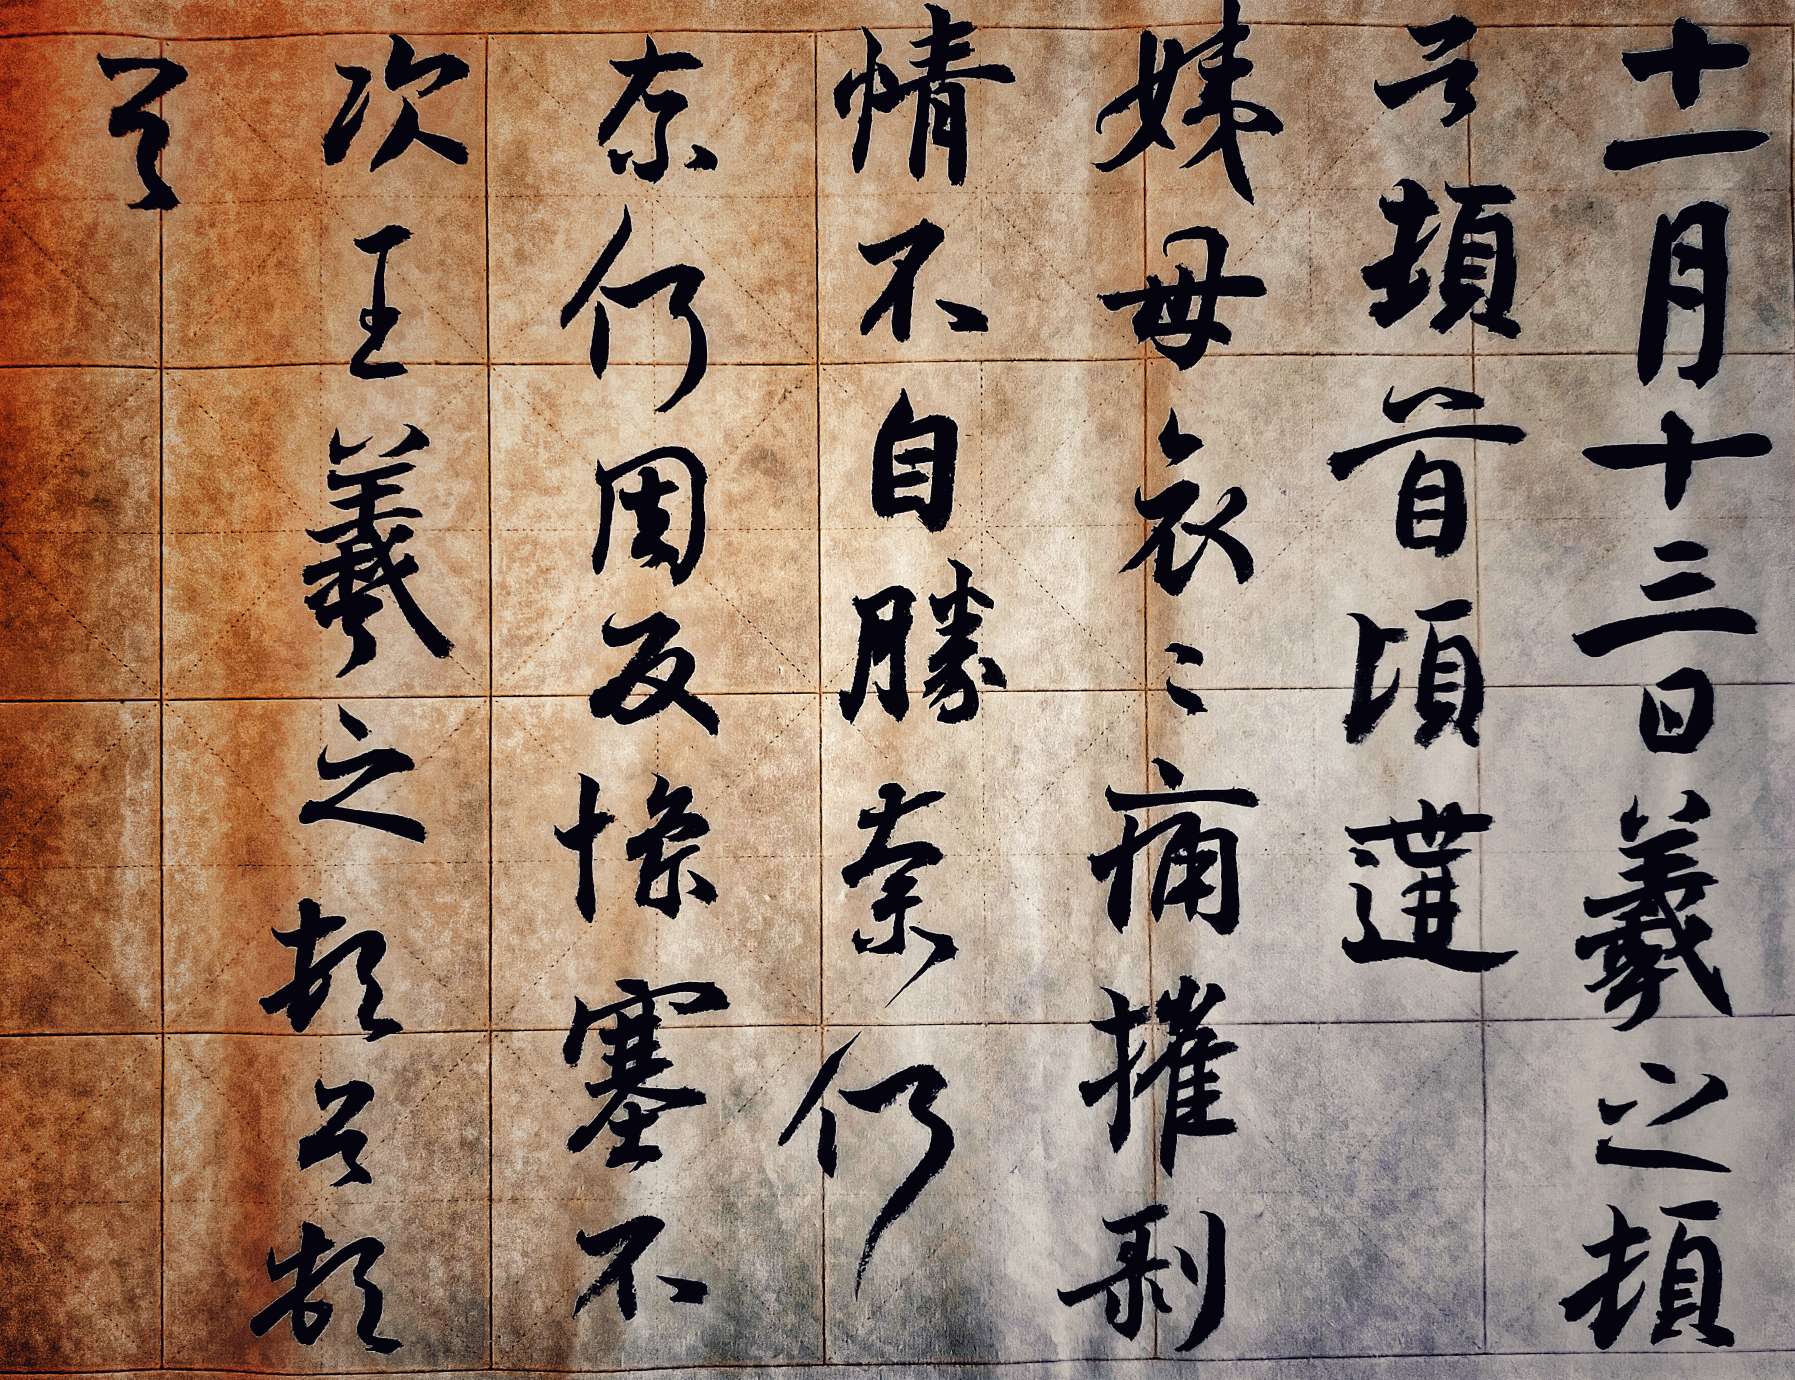 十一月十三日羲之頓
首頓首頃遘
姨母哀〻痛摧剝
情不自勝奈何
奈何因反慘塞不
次王羲之頓首頓
首